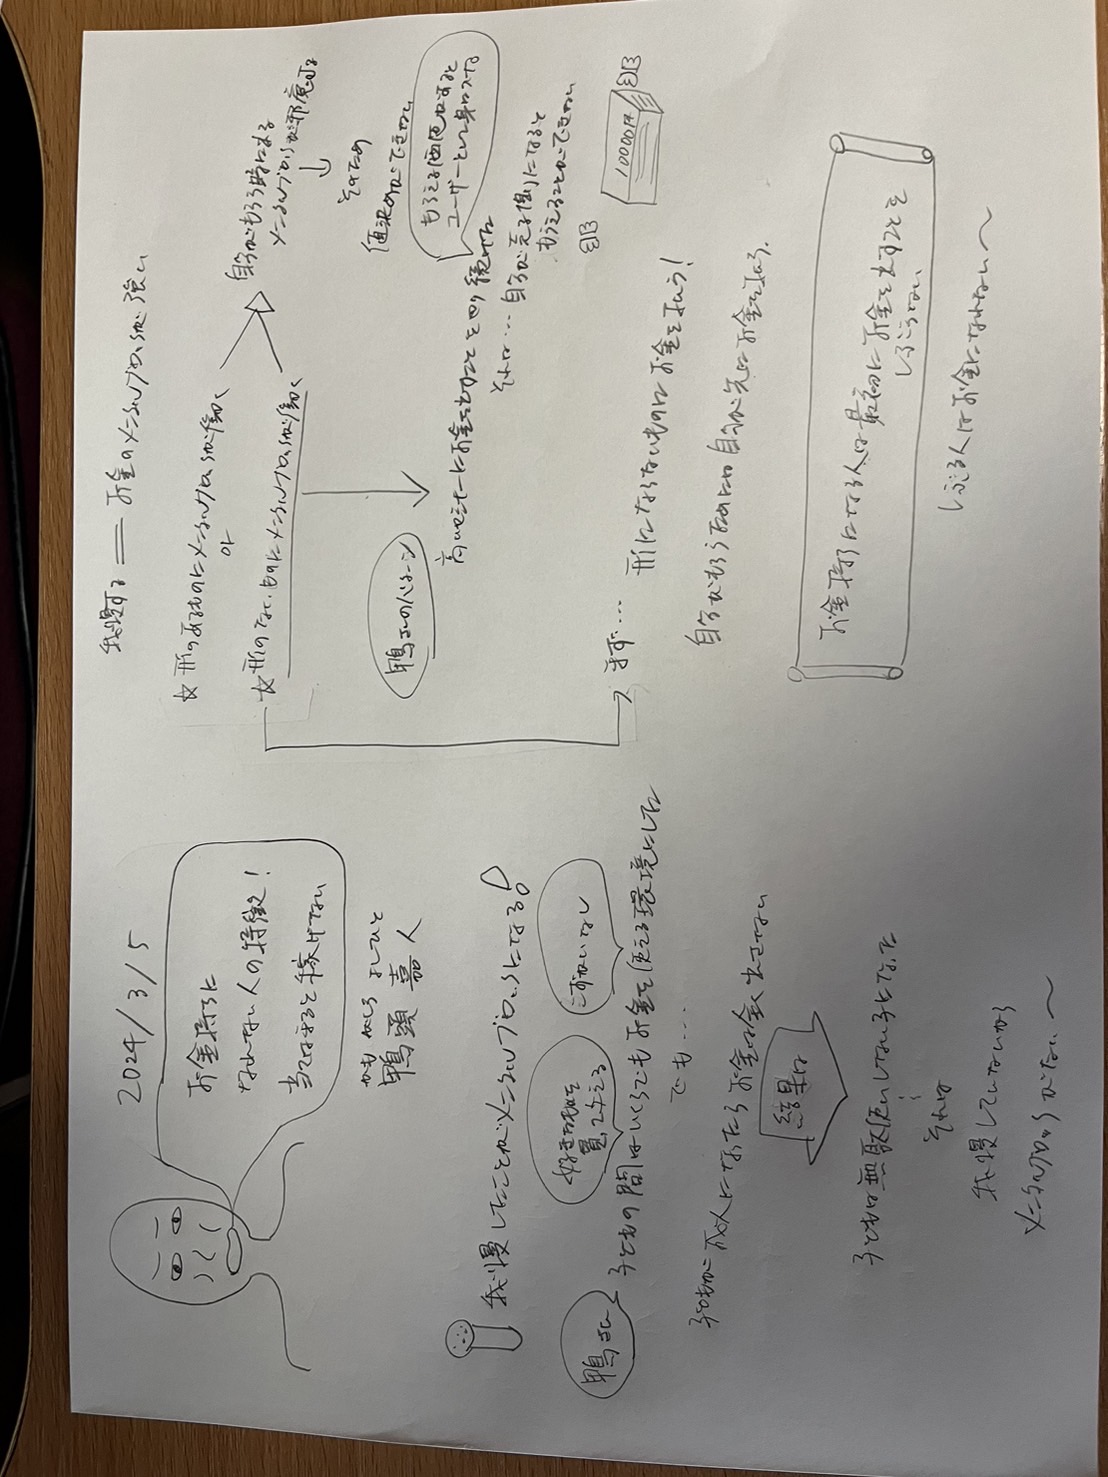 2024/3/5
お金持ちに
なれない人の特徴!
当てはまると稼げない
かもがしら よしひと
鴨頭 嘉人
我慢したことがメンタルブロックになる。
好きな物を
買い与える
こづかいなし
鴨さん
子どもの間はいくらでもお金を使える環境にした
でも…
子どもが大人になったらお金は全く出さない
結果は
子どもは無駄使いしない子になった
それは
我慢していないから
メンタルブロックがない〜
我慢する = お金のメンタルブロックが強い
☆形のあるものにメンタルブロックが働く
or
☆形のないものにメンタルブロックが働く
自分がもらう時になる
メンタルブロックが邪魔する
↓
そのため
値決めができない
鴨さんのパターン
高いセミナーにお金を払うことを繰り返した
もらえる側を体験すると
ユーザーとして身につける
それは…自分が売る側になると
もらえることができない
10000円
まず… 形にならないものにお金を払う!
自分がもらうためには自分が先にお金を払う。
お金持ちになる人は最初にお金を出すことを
しぶらない
しぶる人はお金持になれない〜